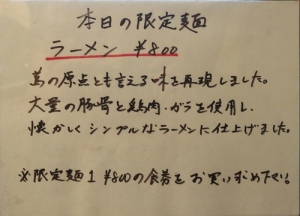 本日の限定麺
ラーメン ¥800
蔦の原点とも言える味を再現しました。
大量の豚骨と鶏肉・ガラを使用し、
懐かしくシンプルなラーメンに仕上げました。
※限定麺1 ¥800の食券をお買い求め下さい。